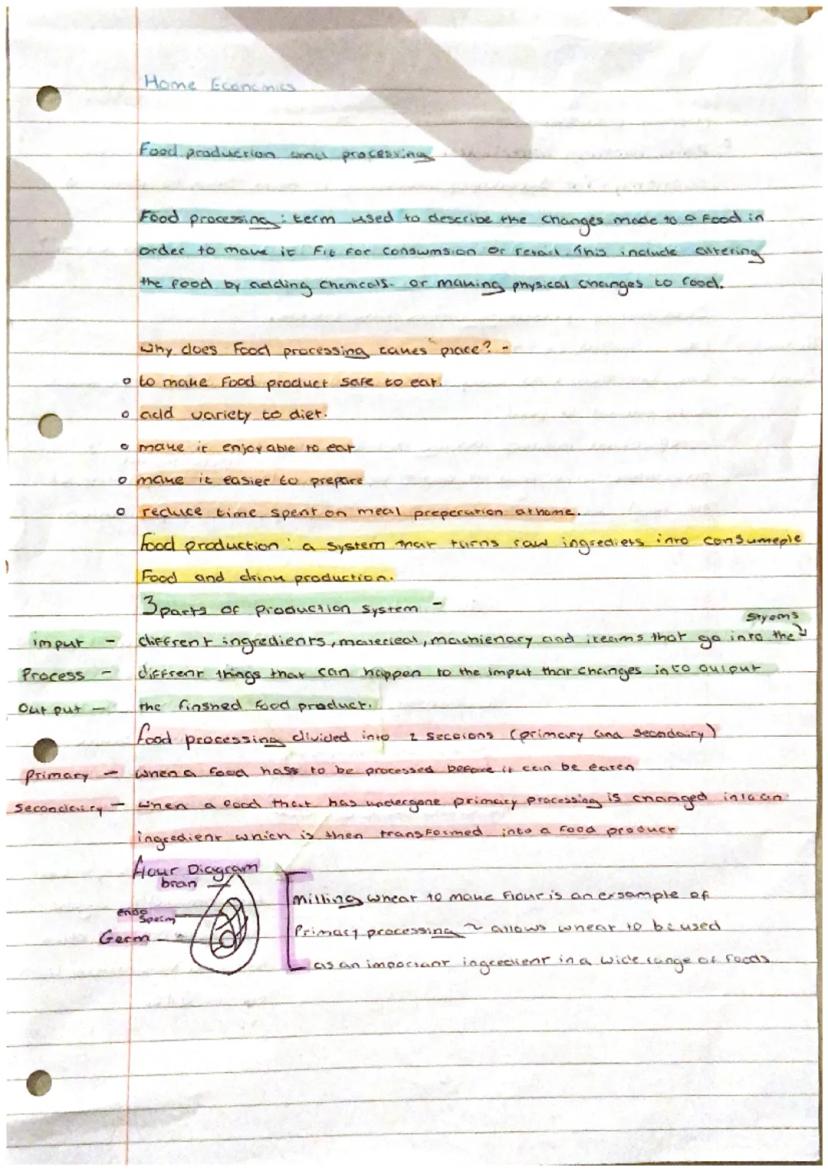 Home Economics
Food production and processing
Food processing: term used to describe the changes made to a food in
order to make it fit for consumsion or retail. This include altering
the food by adding chemicals. or making physical changes to food.
Why does food processing takes place? -
to make food product safe to eat.
add variety to diet.
make it enjoyable to eat
make it easier to prepare
reduce time spent on meal preperation at home.
Food production: a system that turns raw ingrediets into consumeple
Food and drink production.
3 parts of production system -
Stysems
imput - diffrent ingredients, matereal, machienary and iteams that go into the
Process - diffrent things that can happen to the imput that changes into output
Out put - the finshed food product.
food processing divided into 2 secsions (primary and secondairy)
primary - when a food hass to be processed before it can be eaten
secondairy - when a food that has undergone primary processing is changed into an
ingredient which is then transformed into a food product
flour Diagram
bran
endo
sperm
Germ
Milling wheat to make flour is an exsample of
Primary processing ~ allows wheat to be used
as an important ingredient in a wide range of foods